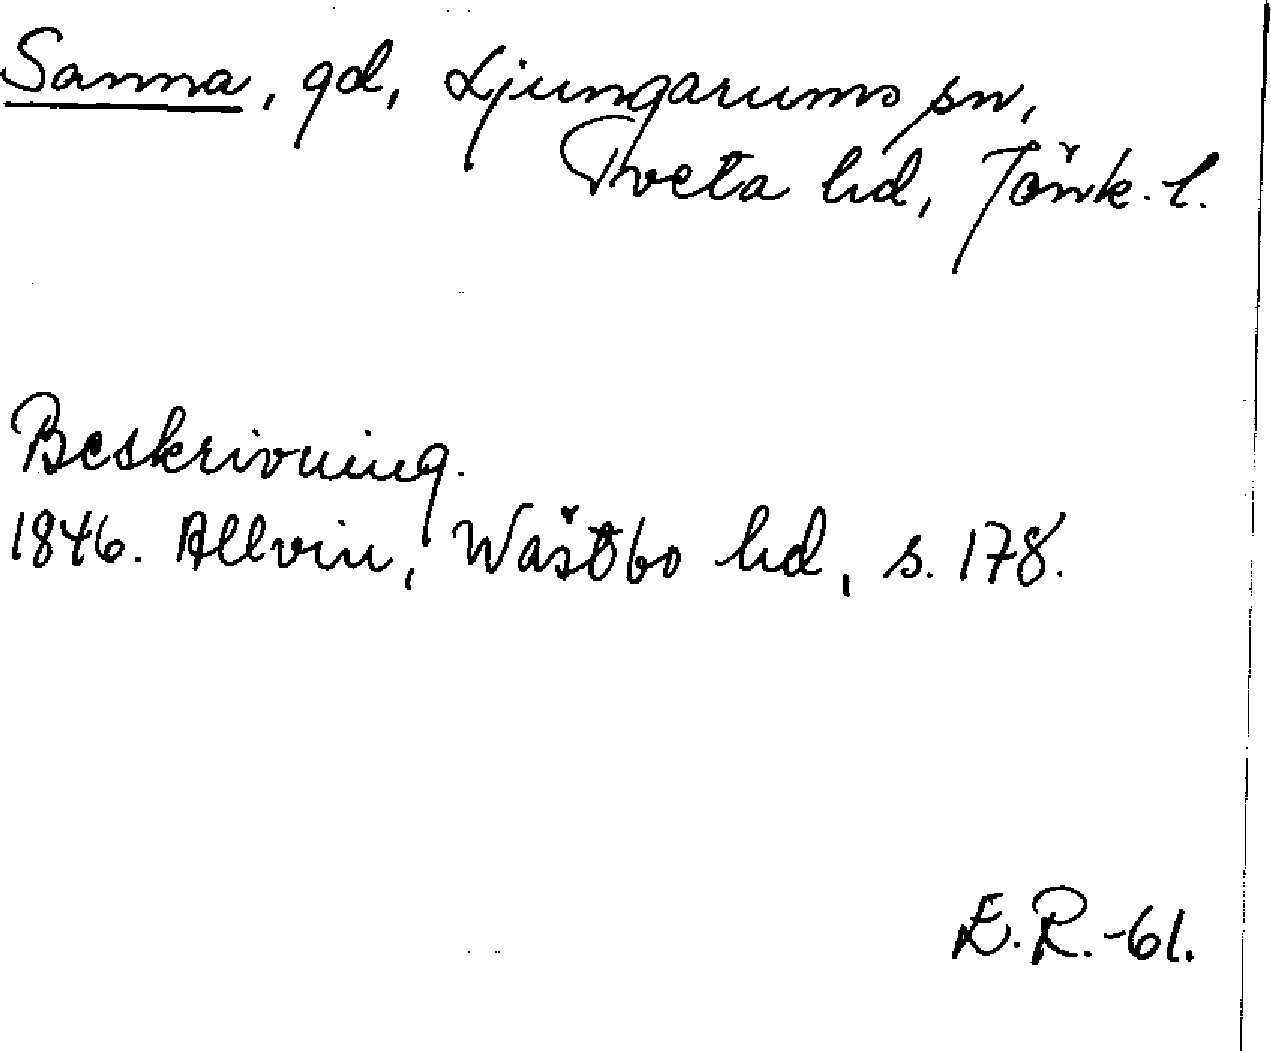 Sanna, gd, Ljungarums sn,
Tveta hd, Jönk. l.
Beskrivning.
1846. Allvin, Wästbo hd, s. 178.
E.R.-61.